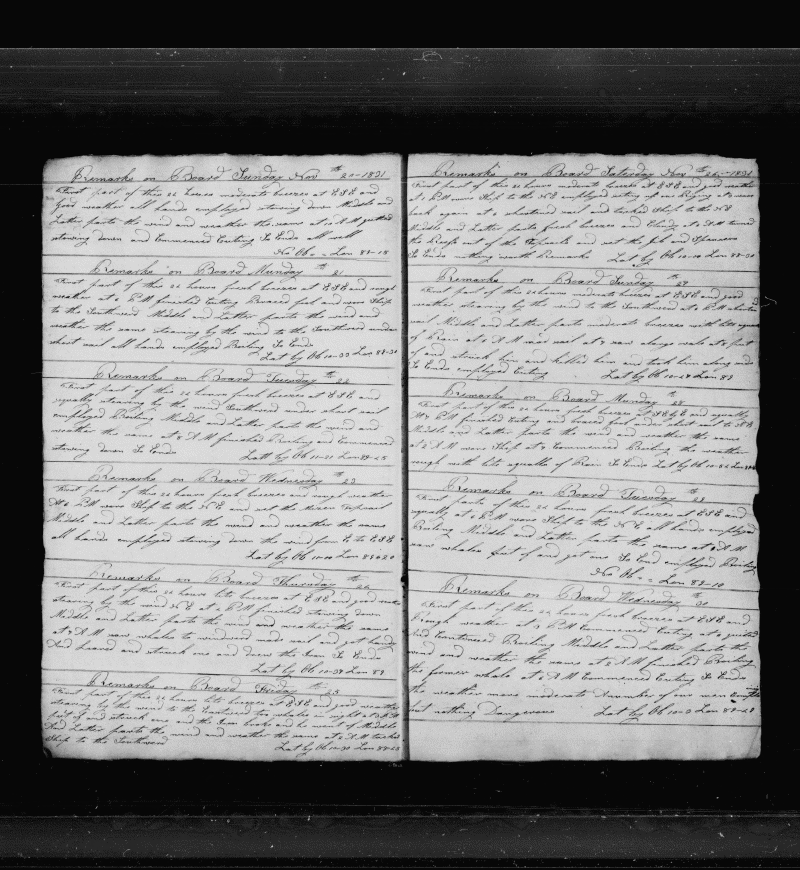 Remarks on Board Sunday Nov th 20-1831
First part of this 24 hours moderate breezes at ESE and
good weather all hands employed stowing down Middle and
Latter parts the wind and weather the same at 10 AM
stowing down and Commenced Cuting So Ends all well
No Ob - - Lon 88-15
Remarks on Board Munday th 21
First part of this 24 hours fresh breezes at ESE and rough
weather at 4 PM finished Cuting Braced fool and wore Ship
to the Southward Middle and Latter parts the wind and
weather the same stearing by the wind to the Southward under
short sail all hands employed Boiling So Ends
Lat by Ob 10-33 Lon 88-30
Remarks on Board Tuesday th 22
First part of this 24 hours fresh breezes at ESE and
squally stearing by the wind Southward under short sail
employed Boiling Middle and Latter parts the wind and
weather the same at 8 AM finished Boiling and Commenced
stowing down So Ends Latt by Ob 10-21 Lon 88-25
Remarks on Board Wednesday th 23
First part of this 24 hours fresh breezes and rough weather
At 6 PM wore Ship to the NE and set the Mizen topsail
Middle and Latter parts the wind and weather the same
all hands employed stowing down the wind from E to ESE
Lat by Ob 10-10 Lon 88-20
Remarks on Board Thursday th 24
First part of this 24 hours lite breezes at ESE and good weather
stearing by the wind NE at 6 PM finished stowing down
Middle and Latter parts the wind and weather the same
at 7 AM saw whales to windward made sail and got
And leaved and struck one and drew the Iron So Ends
Lat by Ob 10-39 Lon 89
Remarks on Board Friday th 25
First part of this 24 hours lite breezes at ESE and good weather
stearing by the wind to the Eastward the whales in sight at
fast of and struck one and the Iron broke and he went of Middle
And Latter parts the wind and weather the same at 2 AM tacked
Ship to the Southward Lat by Ob 10-30 Lon 88-28
Remarks on Board Saterday Nov th 26-1831
First part of this 24 hours moderate breezes at ESE and good weather
at 1 PM wore Ship to the NE employed seting up our Riging at 3 wore
back again at 6 shortened sail and tacked Ship to the NE
Middle and Latter parts fresh breezes and Cloudy at 5 AM turned
the Reefs out of the Topsails and set the Jib and Spanker
So Ends nothing worth Remarks Lat by Ob 10-10 Lon 88-30
Remarks on Board Sunday th 27
First part of this 24 hours moderate breezes at ESE and good
weather stearing by the wind to the Southward at 6 PM shorten
sail Middle and Latter parts moderate breezes with lite squalls
of Rain at 6 AM mad sail at 7 saw whale at 8 fast
of and struck him and killed him and took him along side
So Ends employed Cuting Lat by Ob 10-24 Lon 89
Remarks on Board Munday th 28
First part of this 24 hours fresh breezes at SEbE and squally
At 4 PM finished Cuting and braced fool under short sail to
Middle and Latter parts the wind and weather the same
at 2 AM wore Ship at 4 Commenced Boiling the weather
rough with lite squalls of Rain So Ends Lat by Ob
Remarks on Board Tuesday th 29
First parts of this 24 hours fresh breezes at ESE and
squally at 6 PM wore Ship to the NE all hands employed
Boiling Middle and Latter parts the same at 6 AM
saw whales fast of and got one So End employed Boiling
No Ob - - Lon 89-10
Remarks on Board Wednesday th 30
First part of this 24 hours fresh breezes at ESE and
Rough weather at 12 PM Commenced Cuting at 6
And Continued Boiling Middle and Latter parts the
wind and weather the same at 2 AM finished Boiling
the former whale at 6 AM Commenced Cuting So Ends
the weather more moderate A number of our men
but nothing Dangerous Lat by Ob 10-3 Lon 88-28